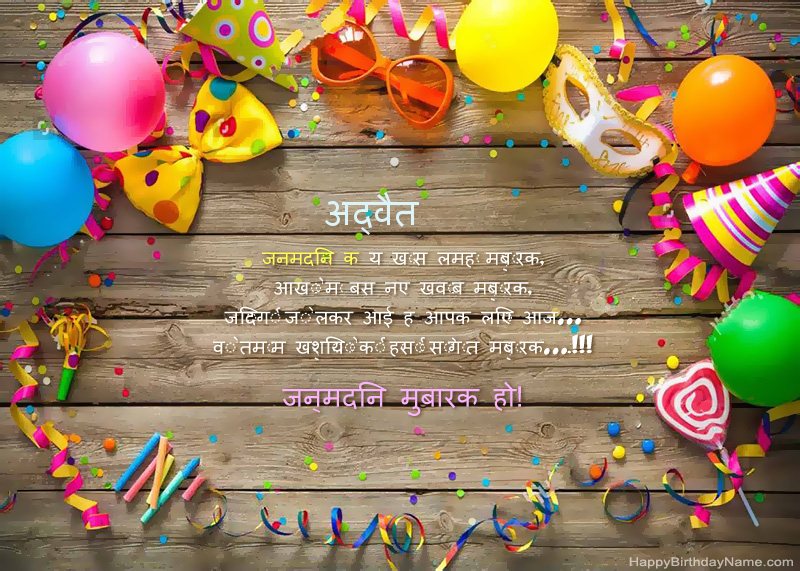 अद्वैत
जनमदिन क य खास लमहा मुबारक,
आंखों में बसे नए ख्वाब मुबारक,
जिंदगी जो लेकर आई है आपके लिए आज...
वो तमाम खुशियों की हंसी सौगात मुबारक...!!!
जन्मदिन मुबारक हो!
HappyBirthdayName.com